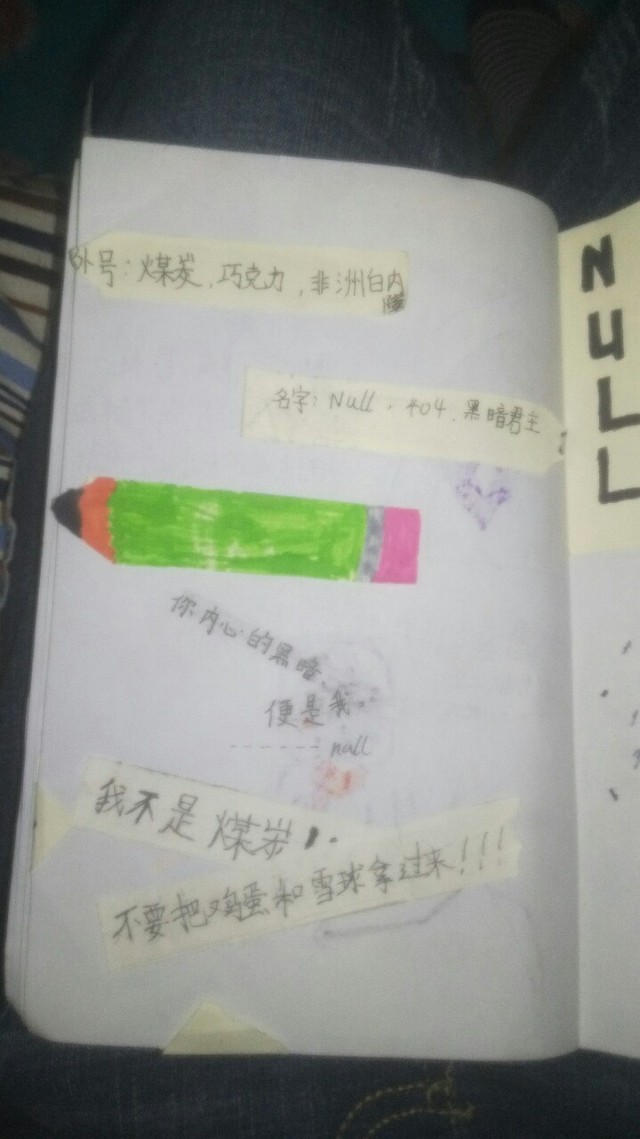 外号：煤炭，巧克力，非洲白内障
名字：Null，404，黑暗君主
你内心的黑暗，
便是我。
------- null
我不是煤炭！.
不要把鸡蛋和雪球拿过来！！！
NULL